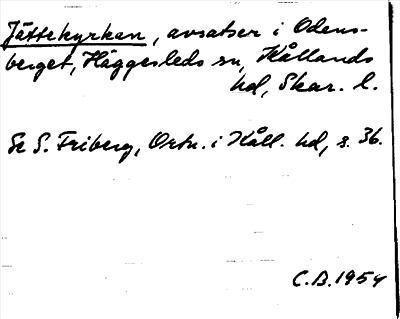 Jättekyrkan, avsatser i Odens-
berget, Häggesleds sn, Kållands
hd, Skar. l.
Se S. Friberg, Ortn. i Kåll. hd, s. 36.
C.B. 1954